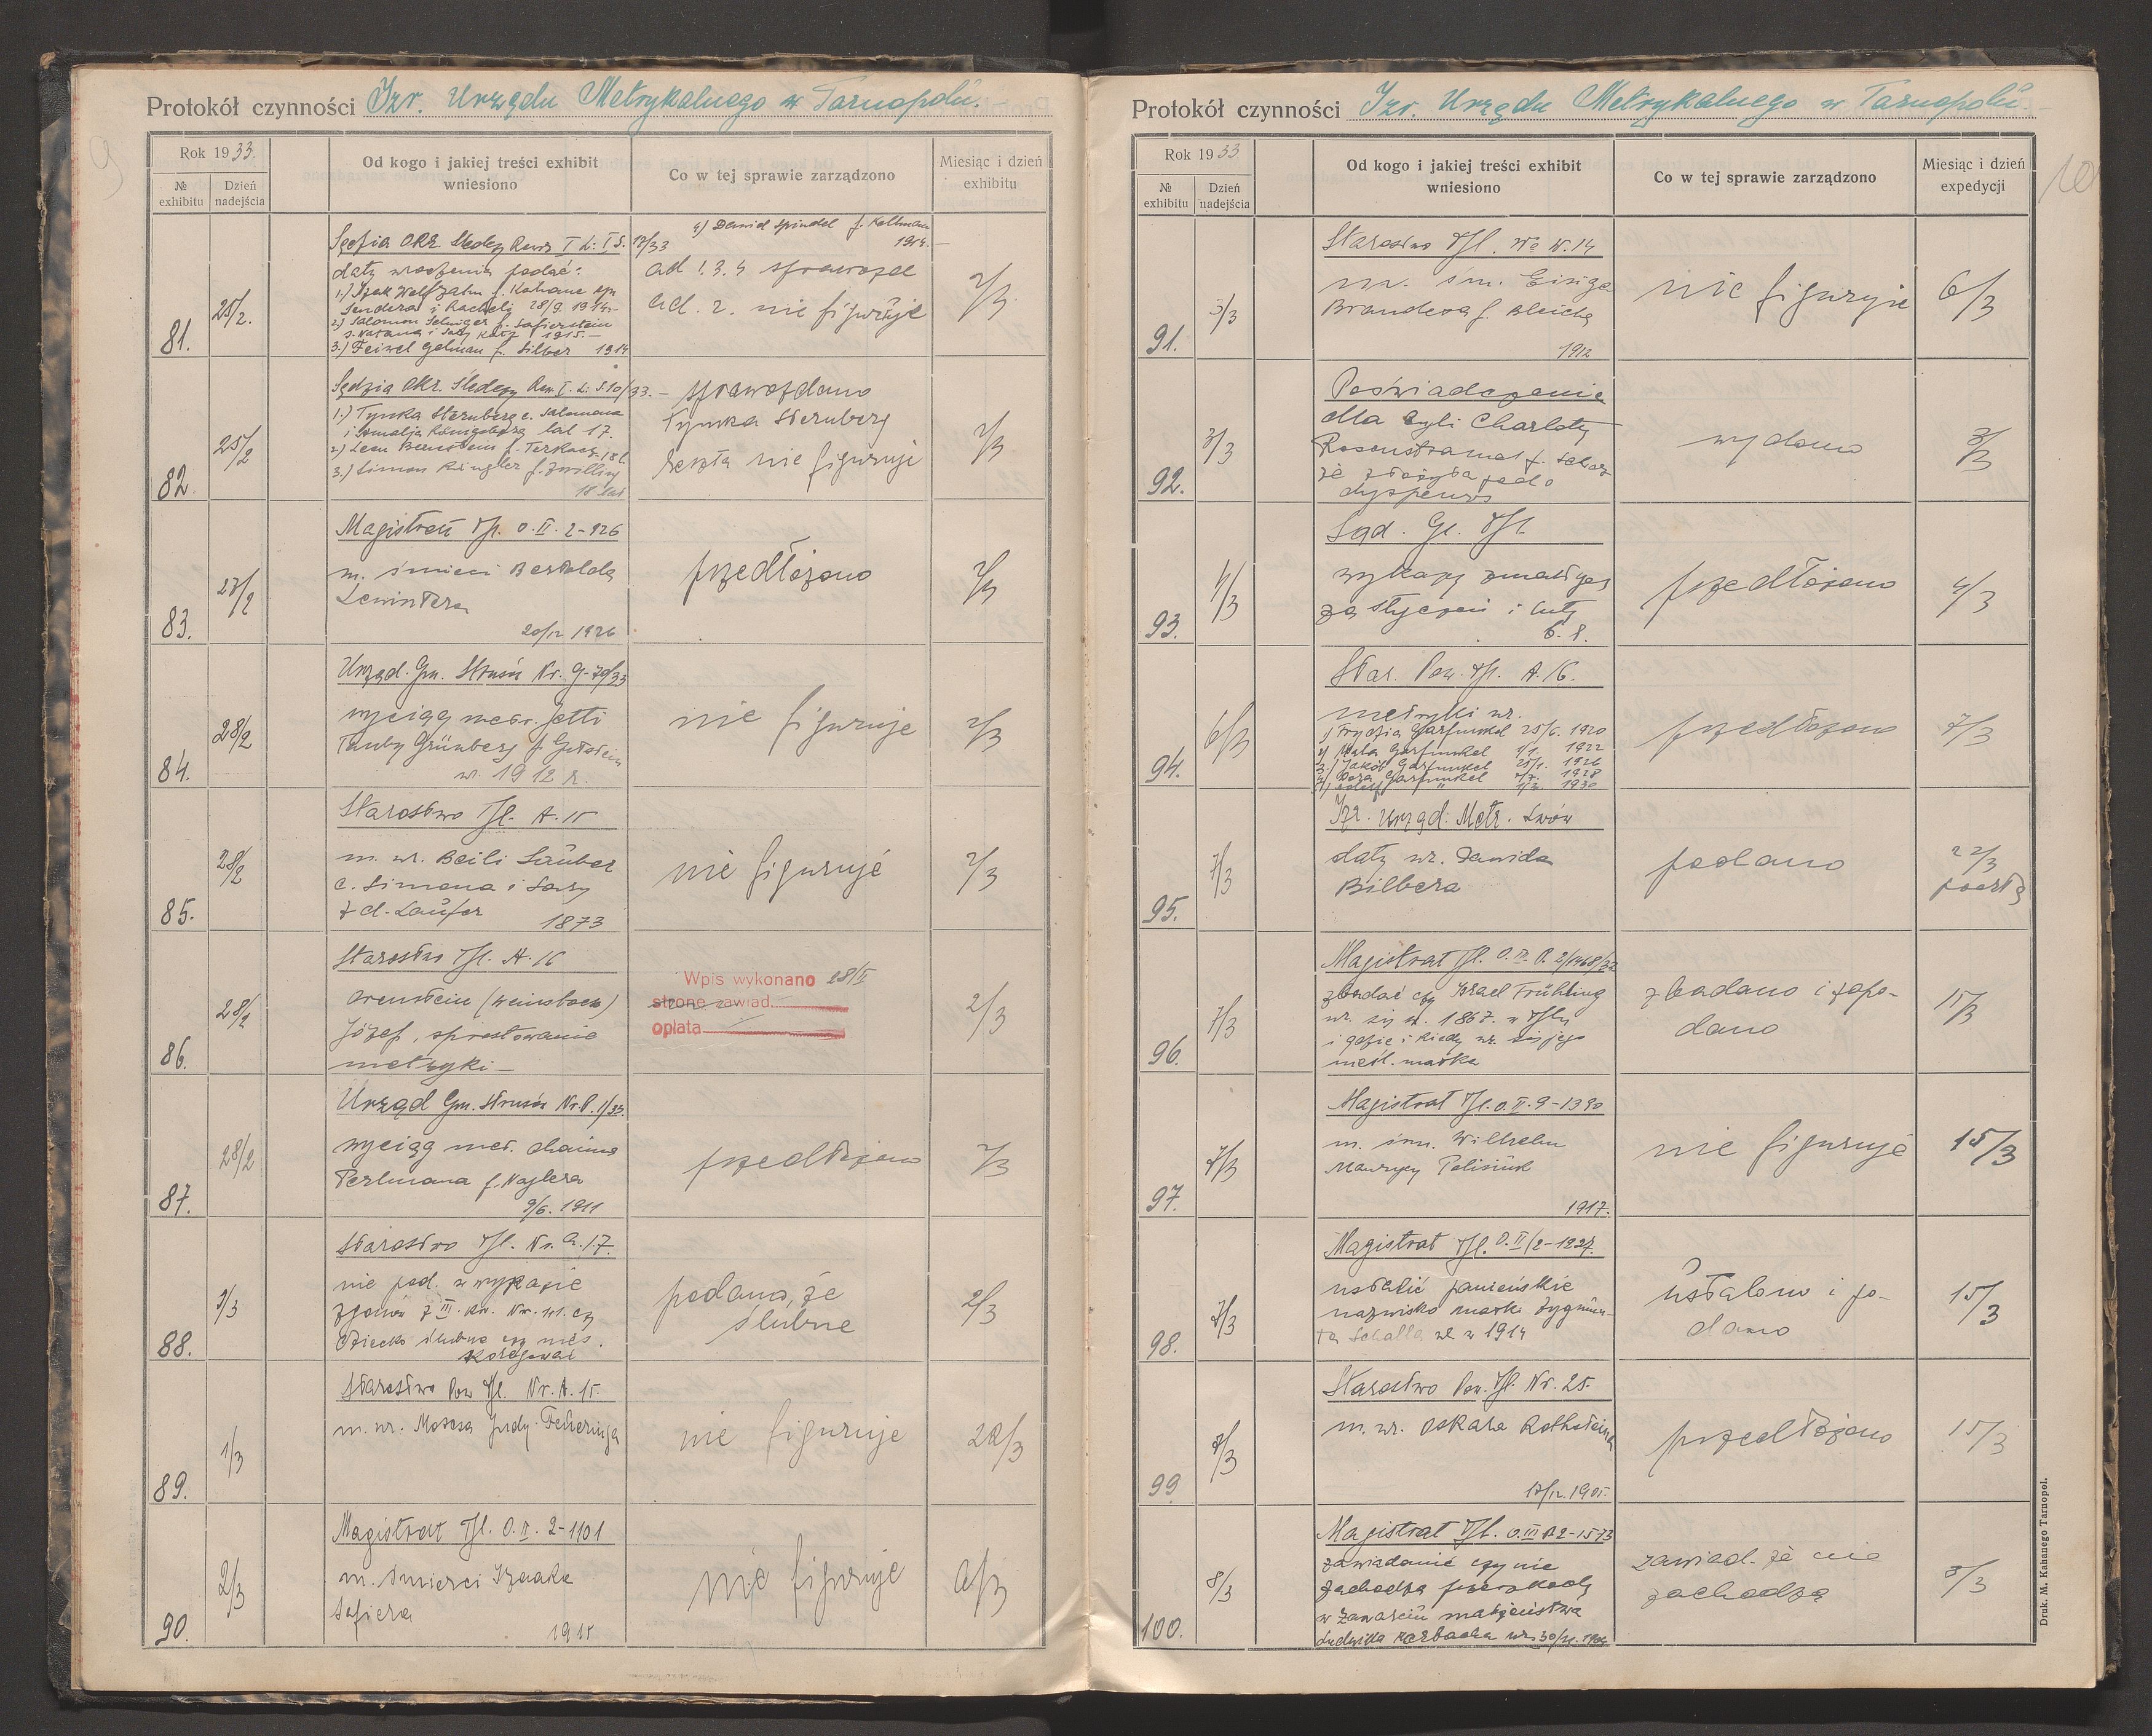 Protokół czynności Izr. Urzędu Metrykalnego w Tarnopolu.
Rok 1933.
№ exhibitu
Dzień nadejścia
Od kogo i jakiej treści exhibit wniesiono
Co w tej sprawie zarządzono
Miesiąc i dzień exhibitu
81.
25/2.
daty urodzenia podać:
Sendera i Racheli 28/9. 1914
3.) Feiwel Gelman f. Silber 1914
4) Dawid Spindel f. Kellmann
1914.
ad 1. 3. 4
ad. 2. nie figuruje
2/3
82.
25/2
Sędzia Okr. Śledczy Rew. I. L: S. 10/33.
1.) Tynka Sternberg c. Salomona
lat 17.
3.) Simon Ringler f. Zwilling
18 lat
sprawozdano
Tynka Sternberg
reszta nie figuruje
2/3
83.
27/2
Magistrat Tpl. O. II. 2-926
m. śmierci Bertolda
Lewintera
20/12 1926
przedłożono
2/3
84.
28/2
Urząd. Gm. Strusów Nr. G-70/33
wyciąg metr. Jetti
Tauby Grünberg f.
w. 1912 r.
nie figuruje
2/3
85.
28/2
Starostwo Tpl. A. 15
m. ur. Beili Lauber
c. Simona i Sary
z d. Laufer 1873
nie figuruje
2/3
86.
28/2
Starostwo Tpl. A. 16
Orenstein
Józef, sprostowanie
metryki —
Wpis wykonano 28/II
stronę zawiad.
opłata
2/3
87.
28/2
Urząd Gm. Strusów Nr. P. 1/33.
wyciąg met. Chaima
Perlmana f. Naglera
9/6. 1911
przedłożono
2/3
88.
1/3
Starostwo Tpl. Nr. A. 17.
nie pod. w wykazie
zgonów z III. kw. Nr. 41. czy
dziecko ślubne czy nieś.
podano, że
ślubne
2/3
89.
1/3
Starostwo Pow Tpl. Nr. A. 15.
m. ur. Mosesa Judy
nie figuruje
22/3
90.
2/3
Magistrat Tpl. O. II. 2-1101
m. śmierci Izaaka
Safiera
1915
nie figuruje
6/3
Protokół czynności Izr. Urzędu Metrykalnego w Tarnopolu.
10
Rok 1933
№ exhibitu
Dzień nadejścia
Od kogo i jakiej treści exhibit wniesiono
Co w tej sprawie zarządzono
Miesiąc i dzień expedycji
91.
3/3
Starostwo Tpl.
m. śm. Eisiga
Brandesa f. Bleicha
1912
nie figuruje
6/3
92.
3/3
Poświadczenie
dla Cyli Charloty
że złożyła pod.
dyspensę
wydano
3/3
93.
4/3
Sąd. Gr. Tpl.
wykazy zmarłych
za styczeń i luty
b. r.
przedłożono
4/3
94.
6/3
Star. Pow. Tpl. A. 16.
metryki ur.
1) Frydzia Garfunkel 25/6. 1920
2) Mala Garfunkel 1/1. 1922
3.) Jakób Garfunkel 25/1. 1926
4) Dora Garfunkel 2/7. 1928
1930
przedłożono
7/3
95.
7/3
Izr. Urząd. Metr. Lwów
daty ur. Dawida
Bilbera
podano
22/3
pocztą
96.
7/3
Magistrat Tpl.
zbadać czy Israel Frühling
ur. się w. 1867. w Tplu
i gdzie i kiedy ur. się jego
nieśl. matka
zbadano i podo-
dano
15/3
97.
7/3
Magistrat Tpl. O. II. 9-1390
m. śm. Wilhelm
Maurycy Polisiuk
1917.
nie figuruje
15/3
98.
7/3
Magistrat Tpl. O. II/2-1227.
ustalić panieńskie
nazwisko matki Zygmun-
ta Schalla ur w 1914
ustalono i po-
dano
15/3
99
7/3
Starostwo Pow. Tpl. Nr. 25.
m. ur. Oskara Rothsteina
17/12. 1905.
przedłożono
15/3
100.
8/3
Magistrat Tpl. O. III B 2-1573
zawiadomić czy nie
zachodzą przeszkody
w zawarciu małżeństwa
Ludwika Karbacka
zawiad. że nie
zachodzą
8/3
Druk. M. Kahanego Tarnopol.